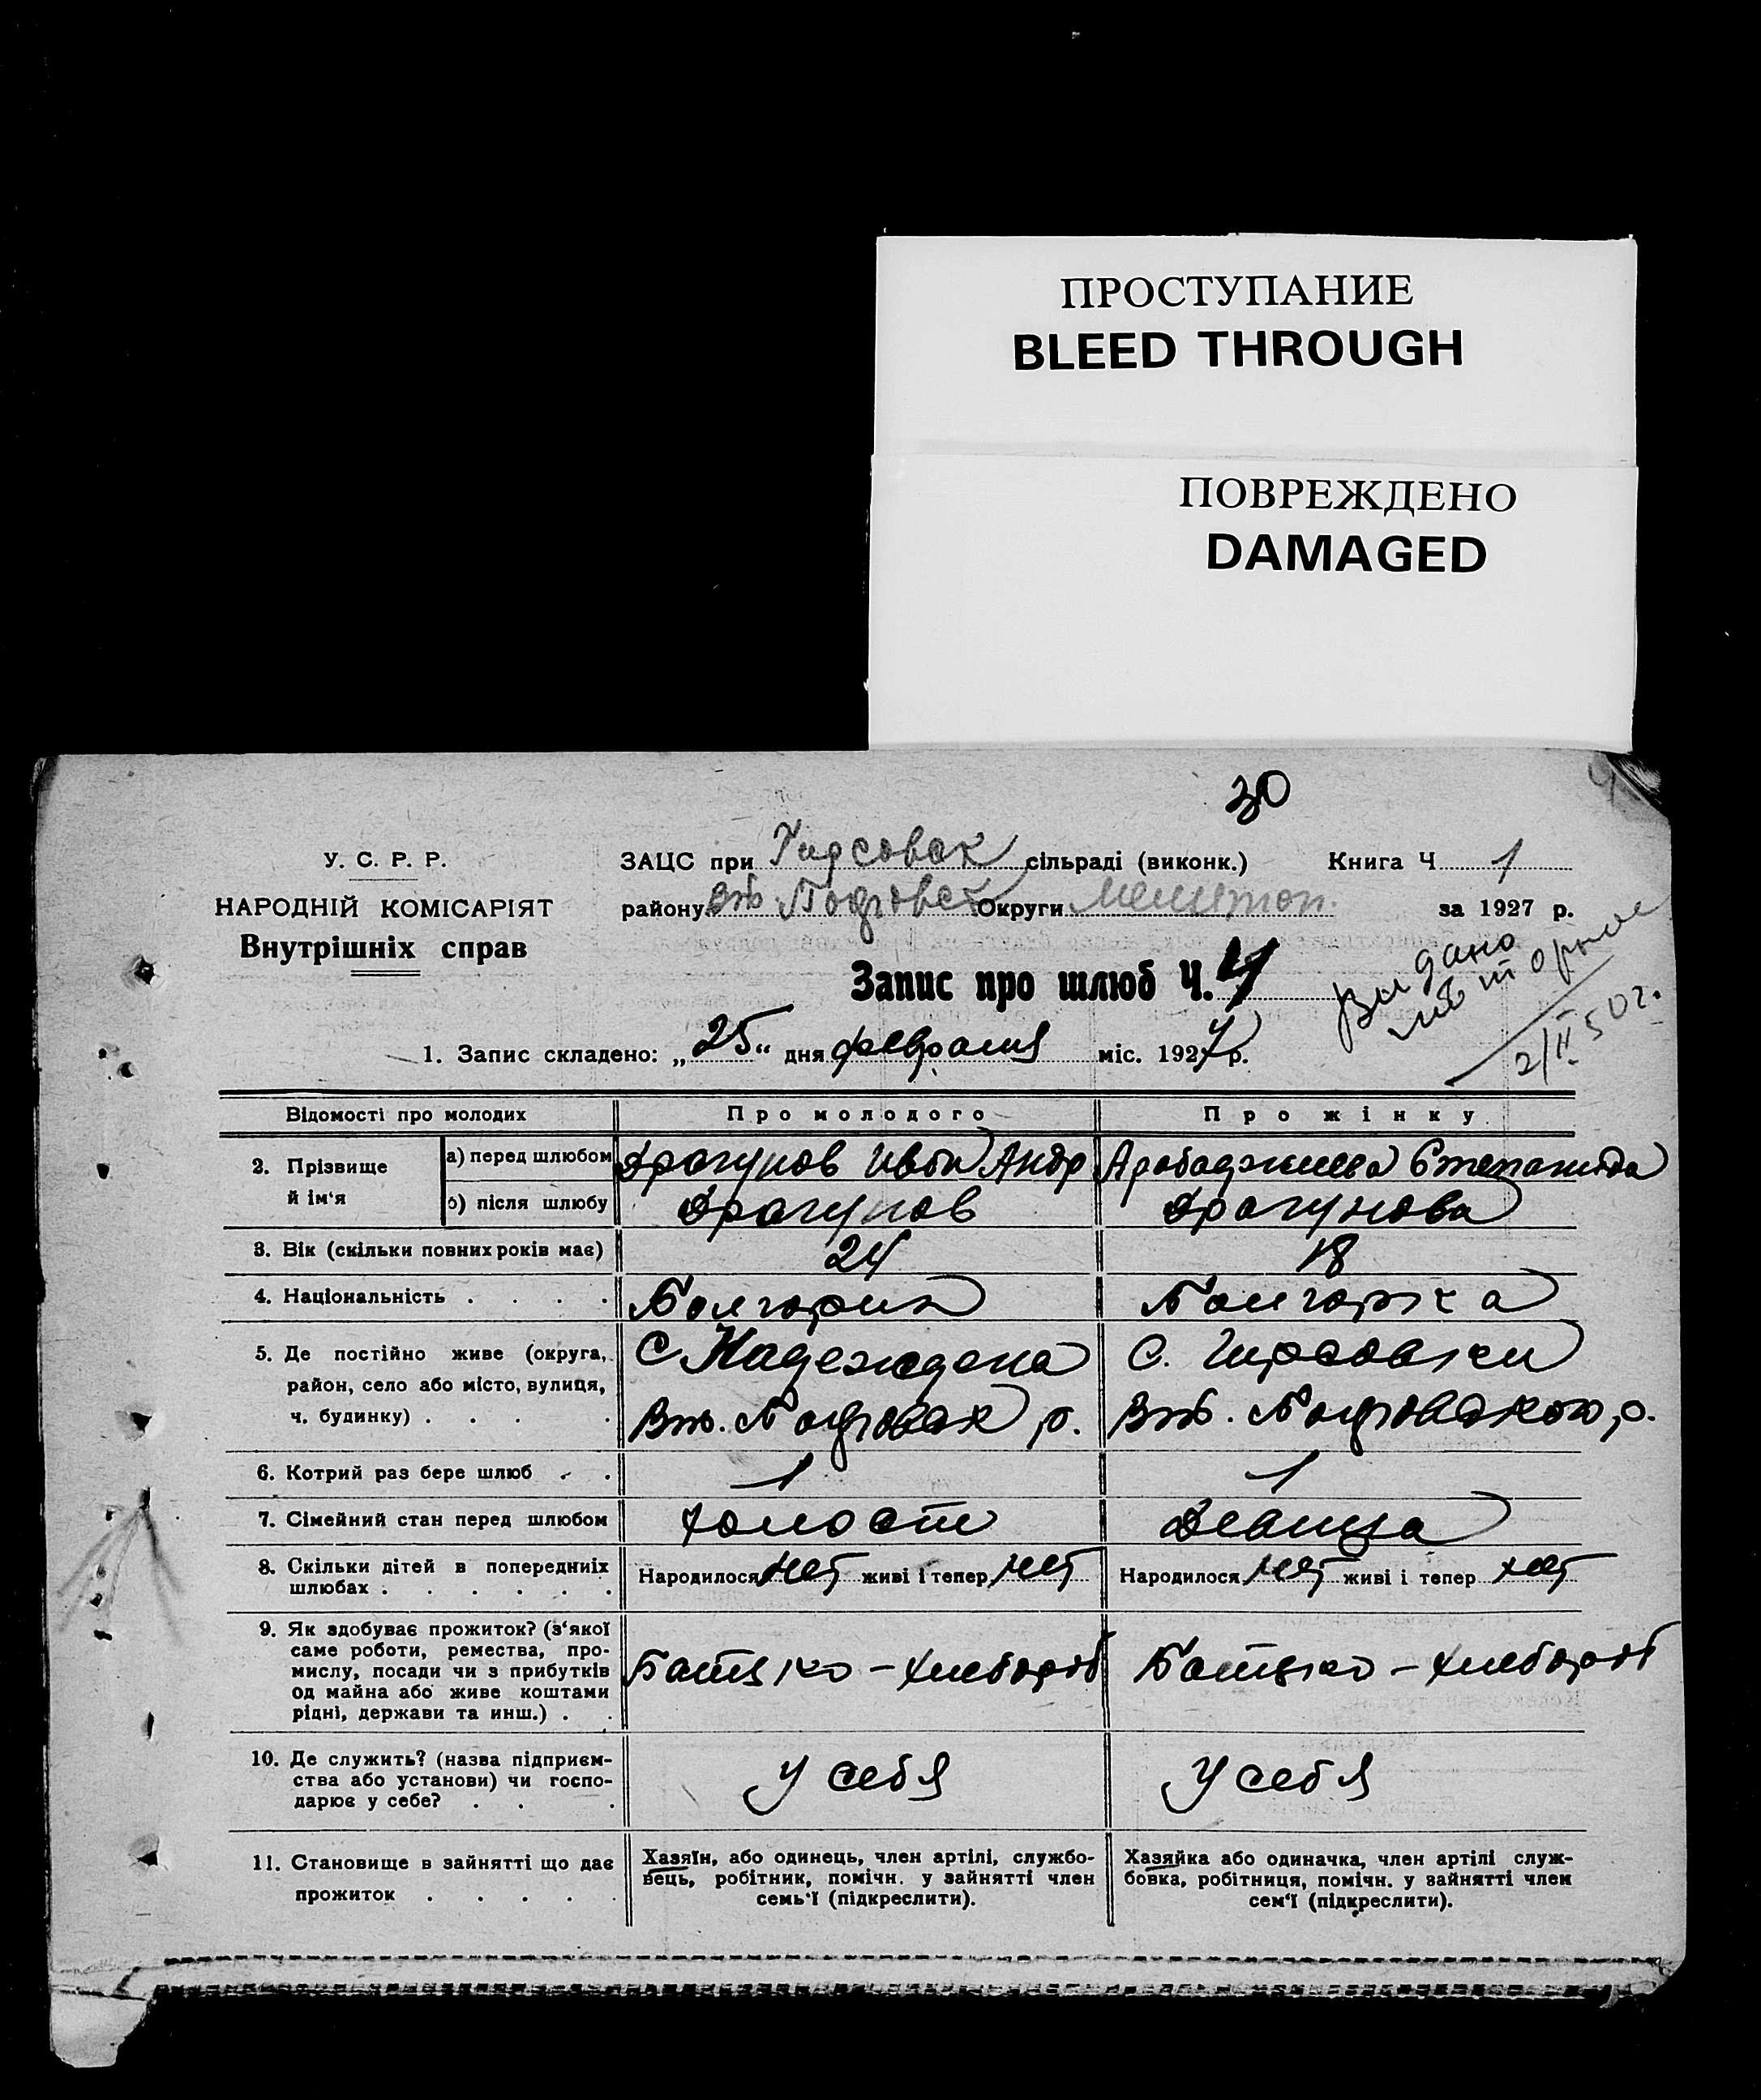 ПРОСТУПАНИЕ
BLEED THROUGH
ПОВРЕЖДЕНО
DAMAGED
30
У. С. Р. Р.
НАРОДНІЙ КОМІСАРІЯТ
Внутрішніх справ
ЗАЦС при Гирсовск сільраді (виконк.) Книга Ч 1
району Вт. Округи Мелитоп. за 1927 р.
Запис про шлюб Ч. 4
Выдано
повторное
2/II 50 г.
1. Запис складено: „25“ дня февраля міс. 1927 р.
Відомості про молодих Про молодого Про жінку
2. Прізвище й ім‘я
а) перед шлюбом Драгунов Иван Андр Арабаджиева Степанида
б) після шлюбу Драгунов Драгунова
3. Вік (скільки повних років має) 24 18
4. Національність . . . . Болгарин Болгарка
5. Де постійно живе (округа,
район, село або місто, вулиця,
ч. будинку) . . . .
С Надеждена
р.
С. Гирсовки
р.
6. Котрий раз бере шлюб . . 1 1
7. Сімейний стан перед шлюбом Холост Девица
8. Скільки дітей в попередніх
шлюбах . . . . . .
Народилося нет живі і тепер нет
Народилося нет живі і тепер нет
9. Як здобуває прожиток? (з‘якої
саме роботи, ремества, про-
мислу, посади чи з прибутків
од майна або живе коштами
рідні, держави та инш.) . .
Батько - хлебороб Батько - хлебороб
10. Де служить? (назва підприєм-
ства або установи) чи госпо-
дарює у себе? . . .
У себя У себя
11. Становище в зайнятті що дає
прожиток . . . . .
Хазяїн, або одинець, член артілі, службо-
вець, робітник, помічн. у зайнятті член
семь‘ї (підкреслити).
Хазяйка або одиначка, член артілі служ-
бовка, робітниця, помічн. у зайнятті член
сем‘ї (підкреслити).